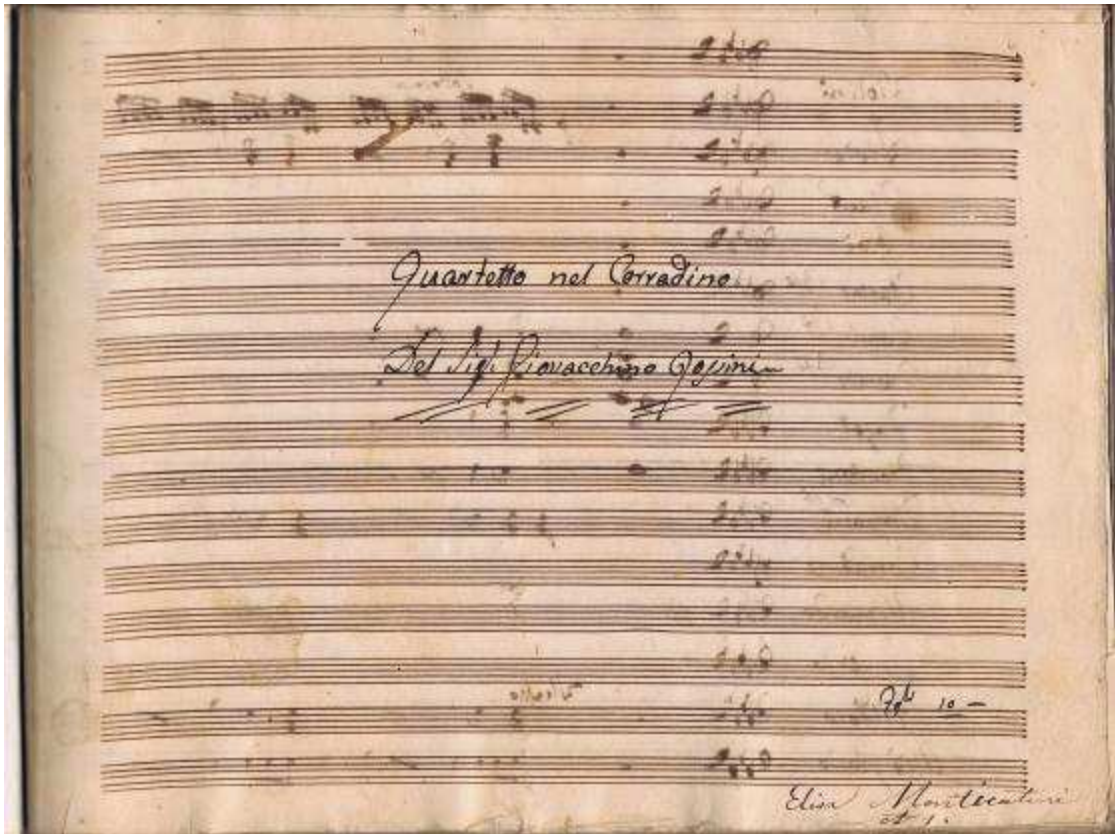 Quartetto nel Corradino
Del Sigr. Giovacchino Rossini
10 —
Elisa Montecatini